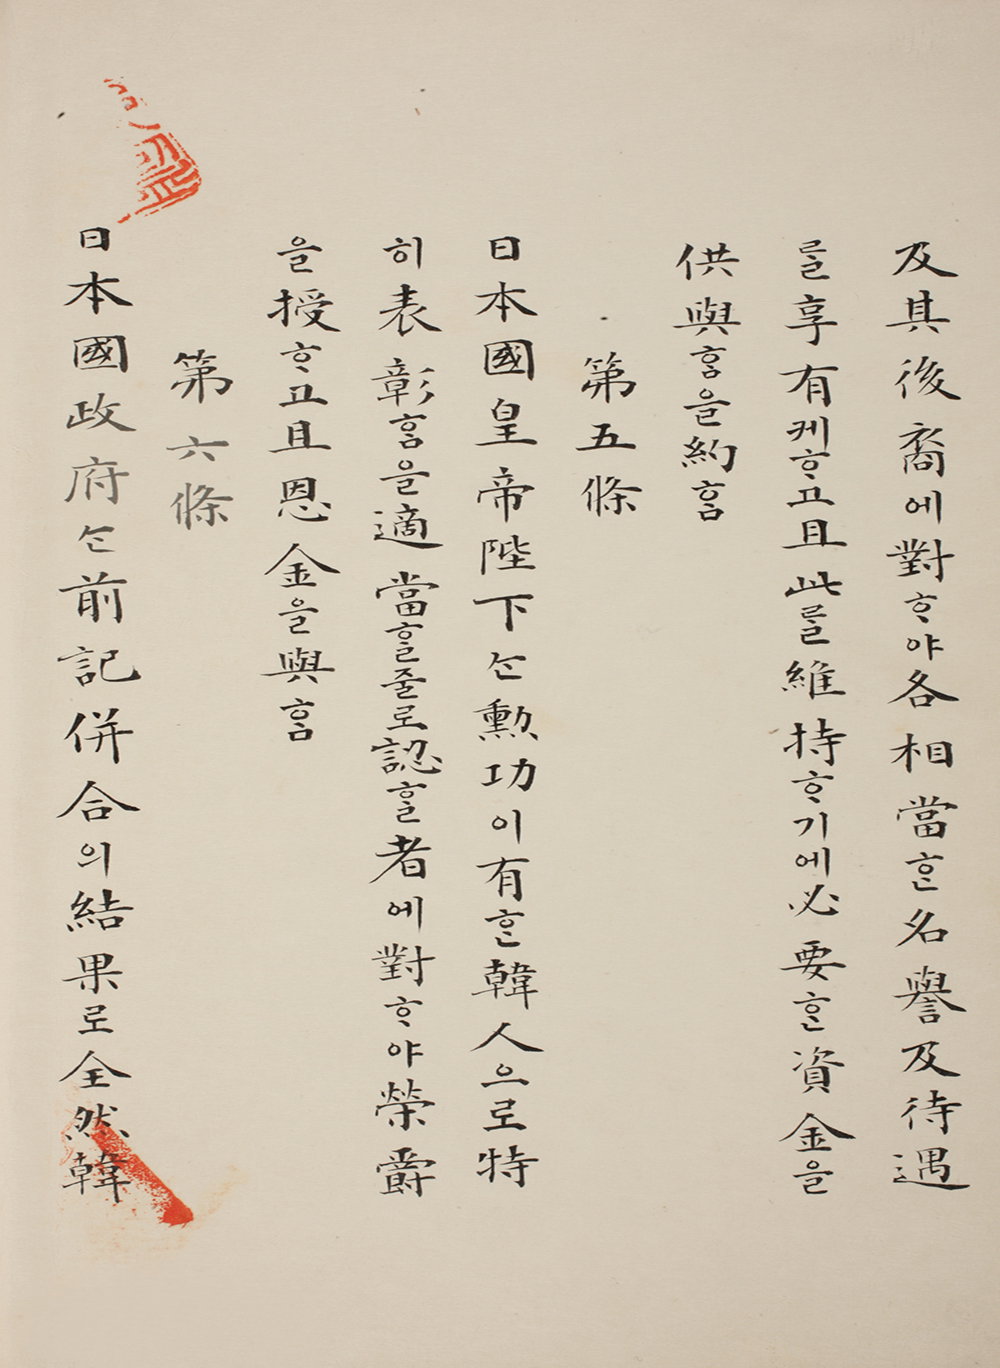 及其後裔에對ᄒᆞ야各相當ᄒᆞᆫ名譽及待遇
를享有케ᄒᆞ고且此를維持ᄒᆞ기에必要ᄒᆞᆫ資金을
供與ᄒᆞᆷ을約ᄒᆞᆷ
第五條
日本國皇帝陛下ᄂᆞᆫ勲功이有ᄒᆞᆫ韓人으로特
히表彰ᄒᆞᆷ을適當ᄒᆞᆯ줄로認ᄒᆞᆯ者에對ᄒᆞ야榮爵
을授ᄒᆞ고且恩金을與ᄒᆞᆷ
第六條
日本國政府ᄂᆞᆫ前記併合의結果로全然韓